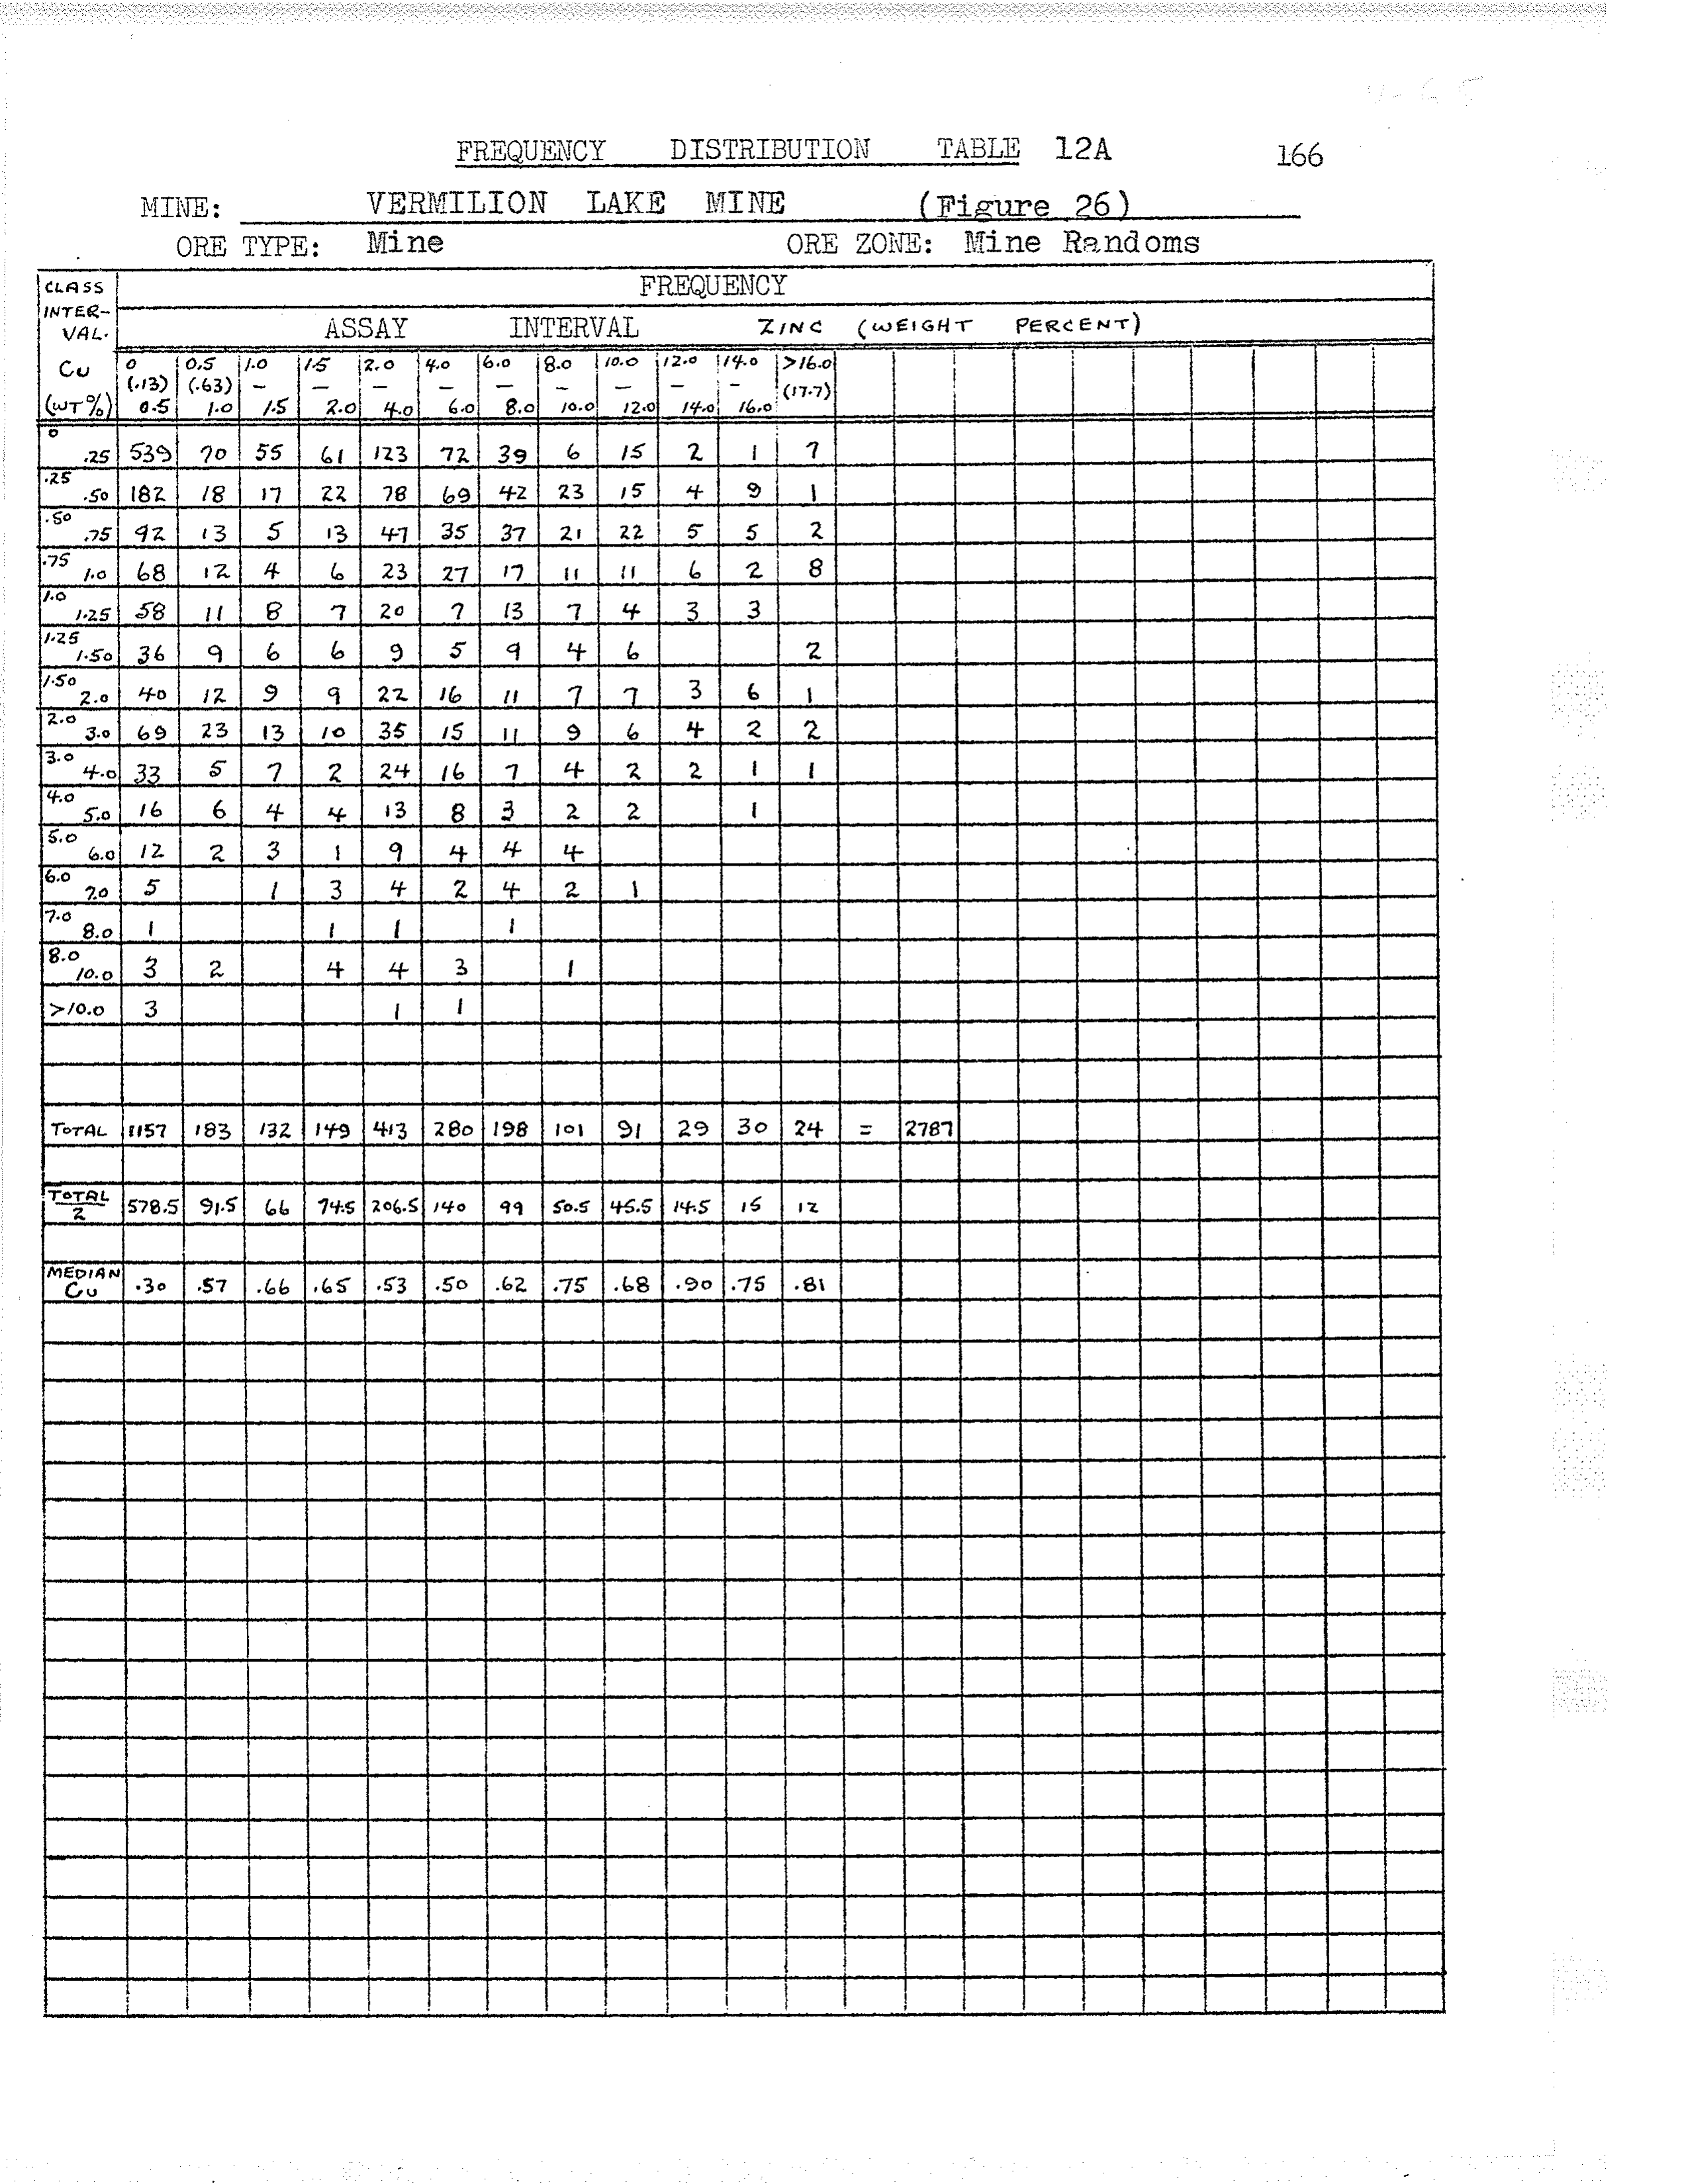 FREQUENCY DISTRIBUTION TABLE 12A 166
MINE: VERMILION LAKE MINE (Figure 26)
ORE TYPE: Mine ORE ZONE: Mine Randoms
CLASS INTER- VAL. FREQUENCY
ASSAY INTERVAL ZINC (WEIGHT PERCENT)
Cu 0 0.5 1.0 1.5 2.0 4.0 6.0 8.0 10.0 12.0 14.0 >16.0
(.13) (.63) – – – – – – – – – (17.7)
(WT%) 0.5 1.0 1.5 2.0 4.0 6.0 8.0 10.0 12.0 14.0 16.0
0 .25 539 70 55 61 123 72 39 6 15 2 1 7
.25 .50 182 18 17 22 78 69 42 23 15 4 9 1
.50 .75 92 13 5 13 47 35 37 21 22 5 5 2
.75 1.0 68 12 4 6 23 27 17 11 11 6 2 8
1.0 1.25 58 11 8 7 20 7 13 7 4 3 3
1.25 1.50 36 9 6 6 9 5 9 4 6 2
1.50 2.0 40 12 9 9 22 16 11 7 7 3 6 1
2.0 3.0 69 23 13 10 35 15 11 9 6 4 2 2
3.0 4.0 33 5 7 2 24 16 7 4 2 2 1 1
4.0 5.0 16 6 4 4 13 8 3 2 2 1
5.0 6.0 12 2 3 1 9 4 4 4
6.0 7.0 5 1 3 4 2 4 2 1
7.0 8.0 1 1 1 1
8.0 10.0 3 2 4 4 3 1
>10.0 3 1 1
TOTAL 1157 183 132 149 413 280 198 101 91 29 30 24 = 2787
TOTAL
2 578.5 91.5 66 74.5 206.5 140 99 50.5 45.5 14.5 15 12
MEDIAN
Cu .30 .57 .66 .65 .53 .50 .62 .75 .68 .90 .75 .81